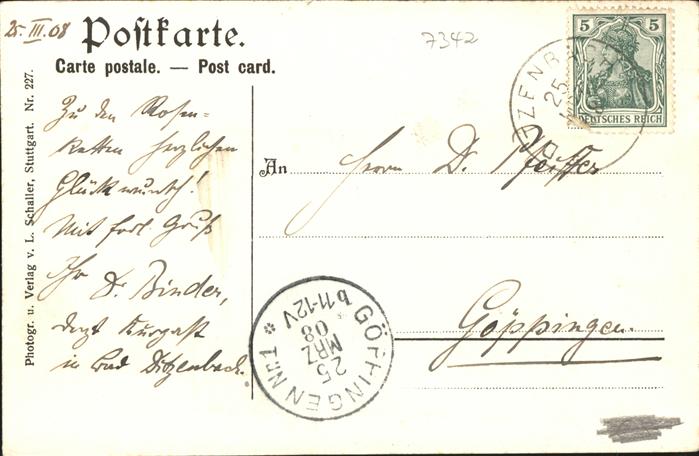 25. III. 08
Postkarte.
7342
Carte postale. — Post card.
5 5
DEUTSCHES REICH
Zu den Rosen-
ketten herzlichen
Glückwunsch!
Mit frdl. Gruß
Ihr Dr. Binder,
derzt Kurgast
in Bad Ditzenbach.
An Herrn Dr. Pfeiffer
Göppingen.
GÖPPINGEN Nr. 1
25
MRZ
08
11-12V
Photogr. u. Verlag v. L. Schaller, Stuttgart. Nr. 227.